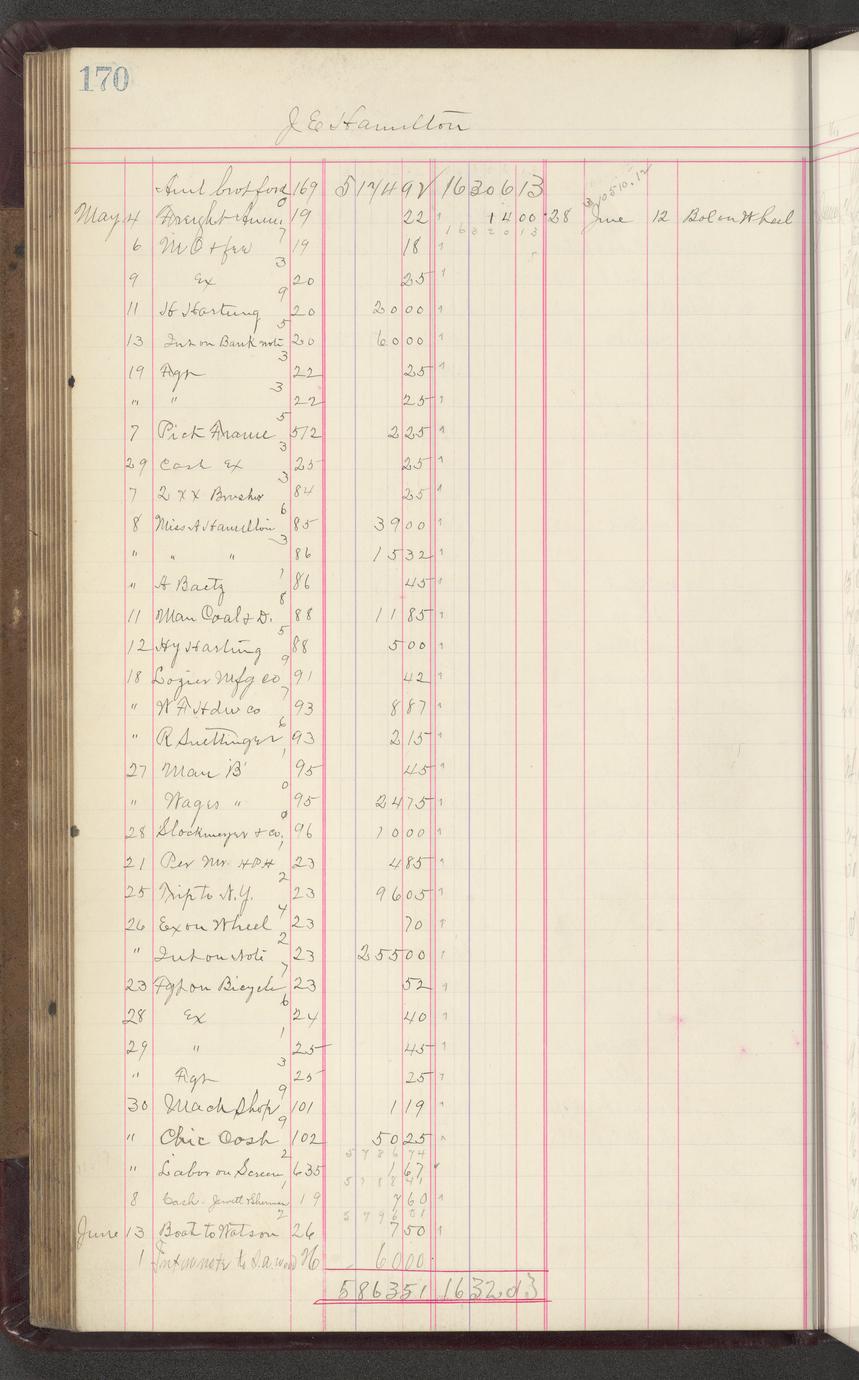 170
J E Hamilton
Amt brot ford 169 517492 1630613
May 4 Freight 19 22 1400 28 June 12 Bal on Wheel
1632013
6 M O + fee 19 18
9 Ex 20 25
11 H Hartung 20 2000
13 Int on Bank note 20 6000
19 Agn 22 25
" " 22 25
7 Pict Frame 512 225
29 Cash Ex 25 25
7 2 XX Brushes 84 25
8 Miss A Hamilton 85 3900
" " " 86 1532
" A Baetz 86 45
11 Man Coal & D. 88 1185
12 Hy Hartung 88 500
18 Lozier Mfg Co 91 42
" W F Hdw co 93 887
" R Suettinger 93 215
27 Man 'B' 95 45
" Wages " 95 2475
28 Stockmeyer & Co. 96 1000
21 Per Mr. HPH 23 485
25 Trip to N.Y. 23 9605
26 Ex on Wheel 23 70
" Int on Note 23 25500
23 Fgt on Bicycle 23 52
28 Ex 24 40
29 " 25 45
" Agn 25 25
30 Mach Shop 101 119
" Chic Cash 102 5025
578674
" Labor on Screen 635 167
578841
8 Cash 19 760
579601
June 13 Boat to Watson 26 750
1 Int on note to 26 6000
586351 1632013